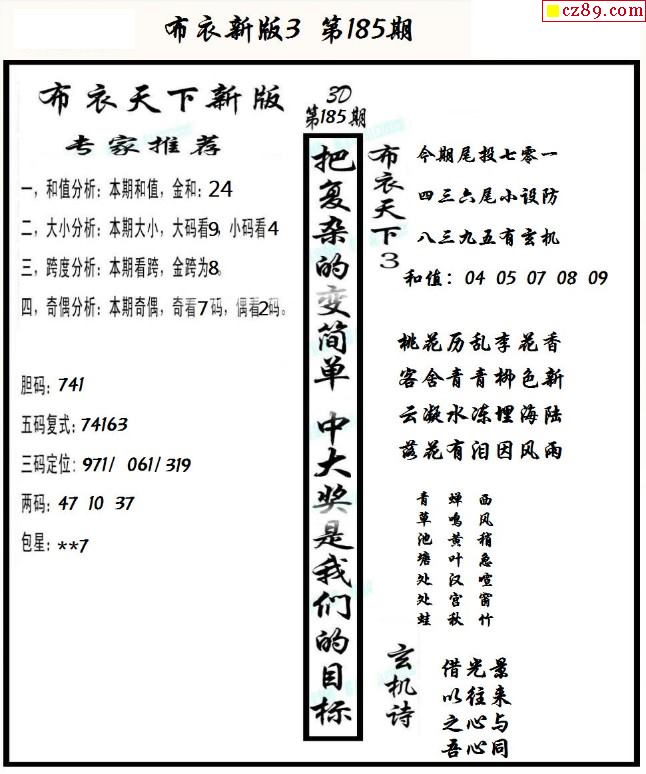 cz89.com
布衣新版3 第185期
布衣天下新版
专家推荐
一，和值分析：本期和值，金和：24
二，大小分析：本期大小，大码看9，小码看4
三，跨度分析：本期看跨，金跨为8。
四，奇偶分析：本期奇偶，奇看7码，偶看2码。
胆码：741
五码复式：74163
三码定位：971/ 061/319
两码：47 10 37
包星：**7
3D
第185期
把复杂的变简单 中大奖是我们的目标
布衣天下3
今期尾投七零一
四三六尾小设防
八三九五有玄机
和值：04 05 07 08 09
桃花历乱李花香
客舍青青柳色新
云凝水冻埋海陆
落花有泪因风雨
青草池塘处处蛙
蝉鸣黄叶汉宫秋
西风稍急喧窗竹
玄机诗
借光景
以往来
之心与
吾心同